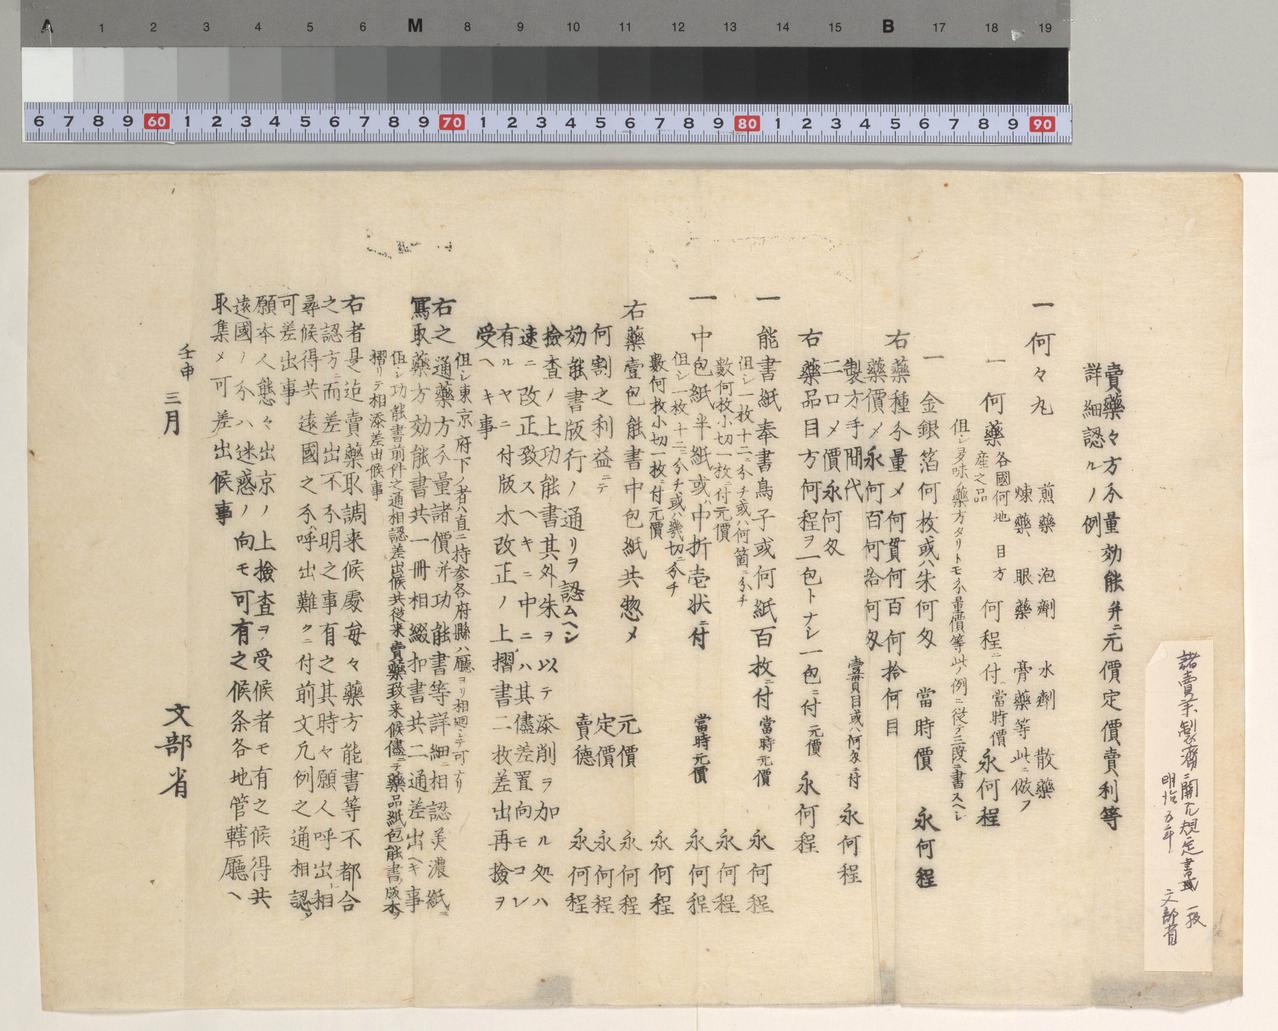 A 1 2 3 4 5 6 M 8 9 10 11 12 13 14 15 B 17 18 19
6 7 8 9 60 1 2 3 4 5 6 7 8 9 70 1 2 3 4 5 6 7 8 9 80 1 2 3 4 5 6 7 8 9 90
諸賣薬製剤ニ関スル規定書式 一枚
明治五年 文部省
賣藥々方分量効能并ニ元價定價賣利等
詳細認ルノ例
一何々丸 煎藥 泡劑 水劑 散藥
煉藥 眼藥 膏藥等此ニ倣フ
一何藥 各國何地産之品 目方 何程ニ付 當時價 永何程
但シ尋味ノ藥方タリトモ分量價等此ノ例ニ従テ三段ニ書スヘシ
一 金銀箔何枚或ハ朱何匁 當時價 永何程
右藥種分量〆何貫何百何拾何目
藥價〆永何百何拾何匁
製方手間代 壹貫目或ハ何匁ニ付 永何程
二口〆價永何匁
右藥品目方何程ヲ一包トナシ一包ニ付 元價 永何程
一能書紙奉書鳥子或何紙百枚ニ付 當時元價 永何程
但シ一枚十二ニ分チ或ハ何箇ニ分チ
數何枚小切一枚ニ付元價 永何程
一中包紙半紙或ハ中折壱状ニ付 當時元價 永何程
但シ一枚十二ニ分チ或ハ幾切ニ分チ
數何枚小切一枚ニ付元價 永何程
右藥壹包能書中包紙共惣〆 元價 永何程
何割之利益ニテ 定價 永何程
賣德 永何程
効能書版行ノ通リヲ認ムヘシ
檢査ノ上功能書其外朱ヲ以テ添削ヲ加ル処ハ
速ニ改正致スヘキニ中ニハ其儘差置向モコレ
有ルヤニ付版木改正ノ上摺書二枚差出再撿ヲ
受ヘキ事
但シ東京府下ノ者ハ直ニ持参各府縣ハ廳ヨリ相廻シテ可ナリ
右之通藥方分量諸價并功能書等詳細ニ相認美濃紙ニ
寫取藥方効能書共一冊相綴扣書共二通差出ヘキ事
但シ功能書前件之通相認差出候共従来賣藥致来候儘ニテ藥品紙包能書ノ版木ヲ
摺リテ相添差出候事
右者是迄賣藥取調来候處毎々藥方能書等不都合
之認方ニ而差出不分明之事有之其時々願人呼出相
尋候得共遠國之分ハ呼出難クニ付前文凡例之通相認
可差出事
願本人態々出京ノ上檢査ヲ受候者モ有之候得共
遠國ノ分ハ迷惑ノ向モ可有之候条各地管轄廳ヘ
取集メ可差出候事
壬申 三月 文部省